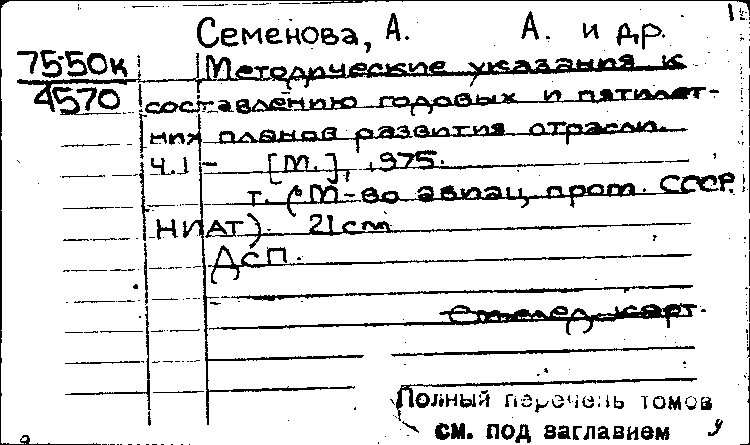 Семенова, А. А. и др.
75-50к
4570
Методические указания к
составлению годовых и пятилет-
них планов развития отрасли.
Ч.1 - [М.], 1975.
т. (М-во авиац. пром. СССР.
НИАТ). 21 cm
ДСП.
См. след. карт.
Полный перечень томов
см. под заглавием